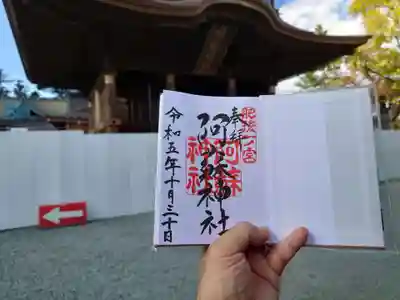 肥後一ノ宮
奉拝
阿蘇神社
阿蘇神社
令和五年十月三十日